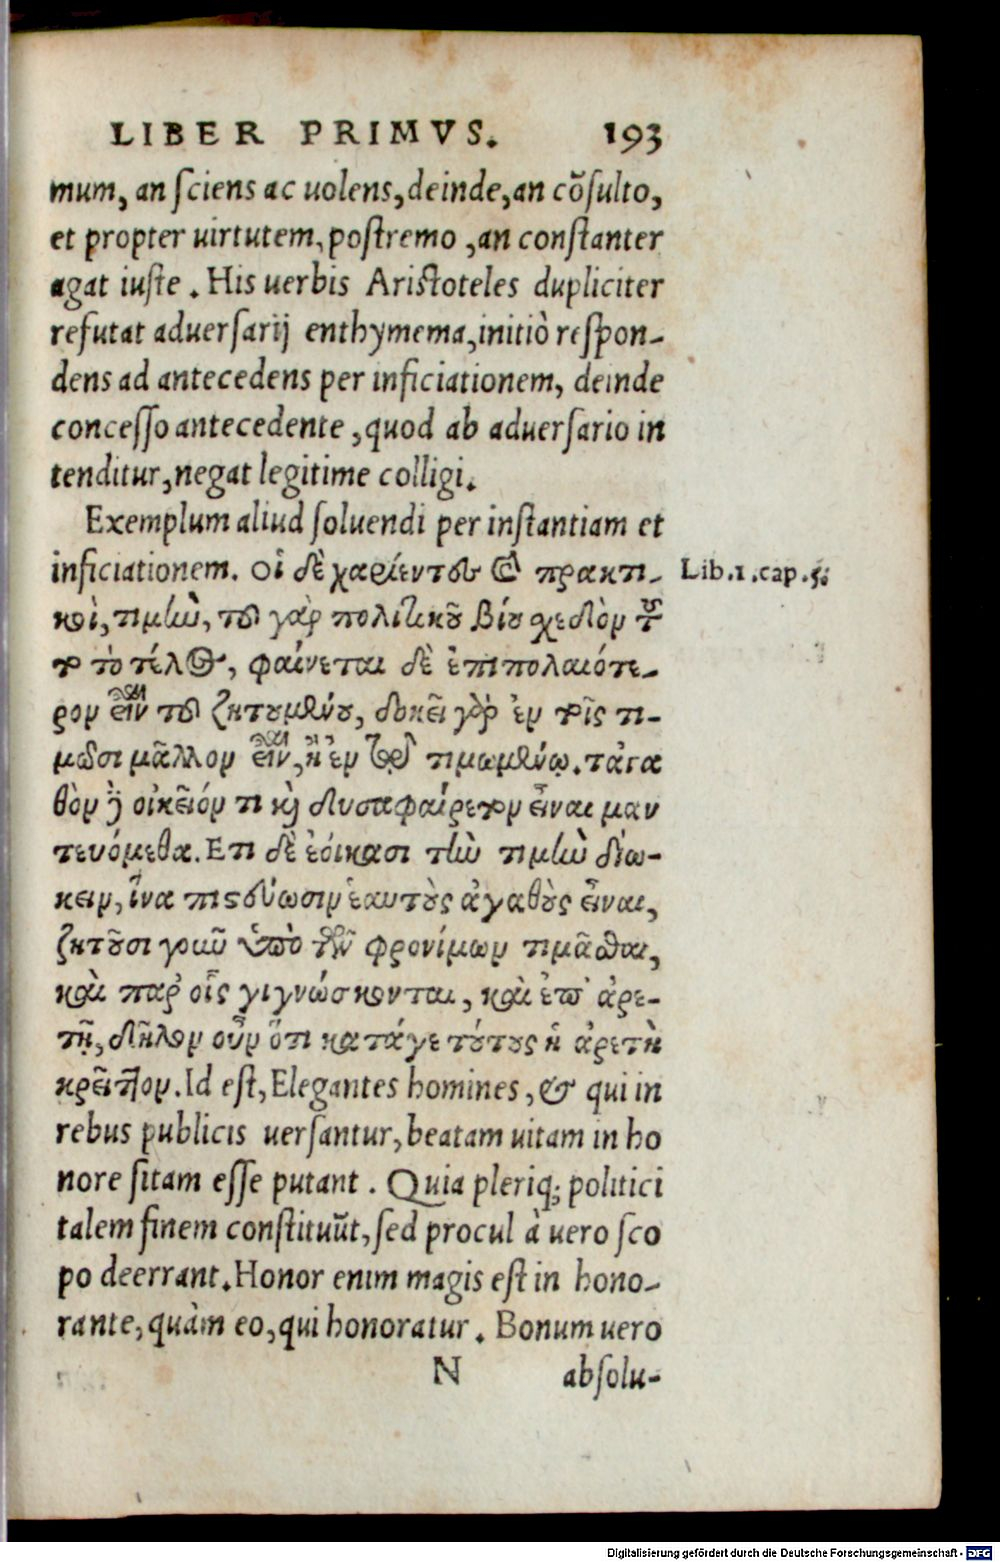 LIBER PRIMVS. 193
mum, an ſciens ac uolens, deinde, an cõſulto,
et propter uirtutem, poſtremo, an conſtanter
agat iuſte. His uerbis Ariſtoteles dupliciter
refutat aduerſarij enthymema, initiò reſpon-
dens ad antecedens per inficiationem, deinde
conceſſo antecedente, quod ab aduerſario in
tenditur, negat legitime colligi.
Exemplum aliud ſoluendi per inſtantiam et
inficiationem. Οἱ δὲ χαρίεντες καὶ πρακτι-
Lib. 1. cap. 5.
κοὶ, τιμὴν, τοῦ γὰρ πολιτικοῦ βίου χεδὸν τοῦ
το τὸ τέλος, φαίνεται δὲ ἐπιπολαιότε-
ρον εἶναι τοῦ ζητουμένου, δοκεῖ γὰρ ἐν τοῖς τι-
μῶσι μᾶλλον εἶναι, ἢ ἐν τῷ τιμωμένῳ. τἀγα
θὸν δὲ οἰκεῖόν τι καὶ δυσαφαίρετον εἶναι μαν
τευόμεθα. Ετι δὲ ἐοίκασι τὴν τιμὴν διώ-
κειν, ἵνα πιστεύωσιν ἑαυτοὺς ἀγαθοὺς εἶναι,
ζητοῦσι γοῦν ὑπὸ τῶν φρονίμων τιμᾶσθαι,
καὶ παρ οἷς γιγνώσκονται, καὶ ἐπ' ἀρε-
τῇ, δῆλον οὖν ὅτι κατάγε τούτους ἡ ἀρετὴ
κρεῖττον. Id eſt, Elegantes homines, & qui in
rebus publicis uerſantur, beatam uitam in ho
nore ſitam eſſe putant. Quia pleriq; politici
talem finem conſtituũt, ſed procul à uero ſco
po deerrant. Honor enim magis eſt in hono-
rante, quàm eo, qui honoratur. Bonum uero
N absolu-